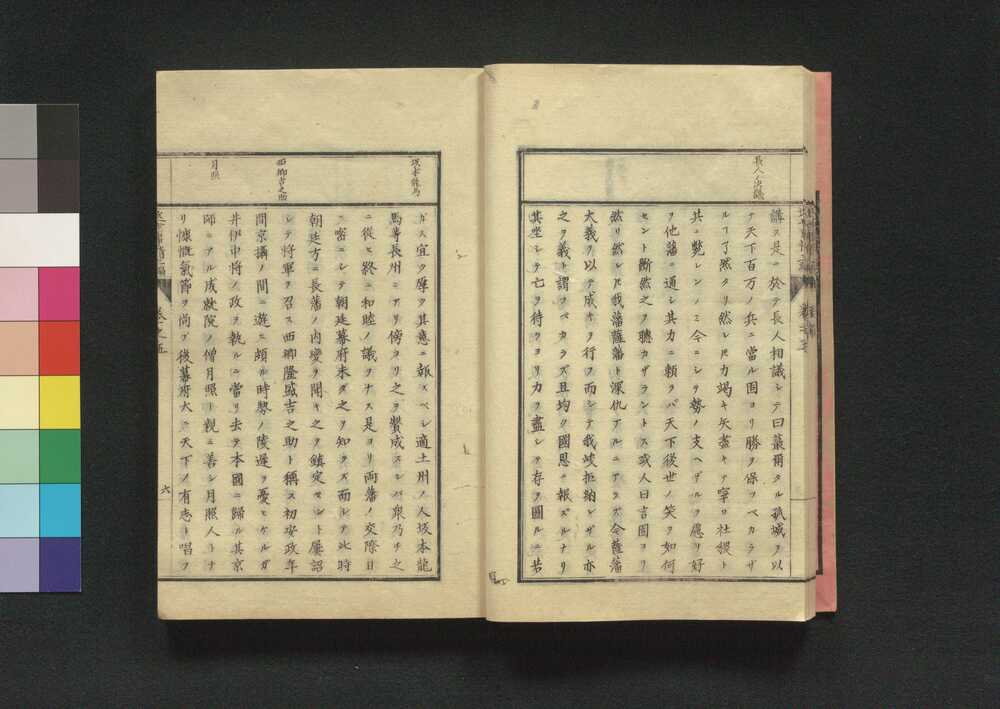 長人ノ決議
講ス是ニ於テ長人相議シテ曰蕞爾タル孤城ヲ以
テ天下百万ノ兵ニ當ル固ヨリ勝ヲ保ツベカラザ
ルヿ了然タリ然レ𪜈力竭キ矢盡キテ寧ロ社稷ト
其ニ斃レンノミ今ニシテ勢ノ支ヘザルヲ慮リ好
ヲ他藩ニ通シ其力ニ頼ラバ天下後世ノ笑ヲ如何
セント斷然之ヲ聽カザラントス或人曰言固ヨリ
然リ然レ𪜈我藩薩藩ト深仇アルニアラズ今薩藩
大義ヲ以テ成キヲ行フ而シテ我峻拒納レザル亦
之ヲ義ト謂フベカラズ且均ク國恩ニ報ズルナリ
其坐シテ亡ヲ待ツヨリ力ヲ盡シテ存ヲ圖ルニ若
坂本龍馬
西郷吉之助
月照
ガズ宜ク厚ク其意ニ酬ズベシ適土州ノ人坂本龍
馬等長州ニアリ傍ヨリ之ヲ賛成スシバ衆乃チ之
ニ從ヒ終ニ和睦ノ議ヲナス是ヨリ両藩ノ交際日
ニ密ニシテ朝廷幕府未ダ之ヲ知ラズ而シテ此時
朝廷方ニ長藩ノ内變ヲ聞キ之ヲ鎮定セント屢詔
シテ將軍ヲ召ス西郷隆盛吉之助ト稱ス初安政年
間京攝ノ間ニ遊ヒ頗ル時勢ノ陵遲ヲ憂ヒケルガ
井伊中將ノ政ヲ執ルニ當リ去テ本國ニ歸ル其京
師ニアル成就院ノ僧月照ト親ミ善シ月照人トナ
リ慷慨氣節ヲ尚フ後幕府大ニ天下ノ有志ト唱フ
六